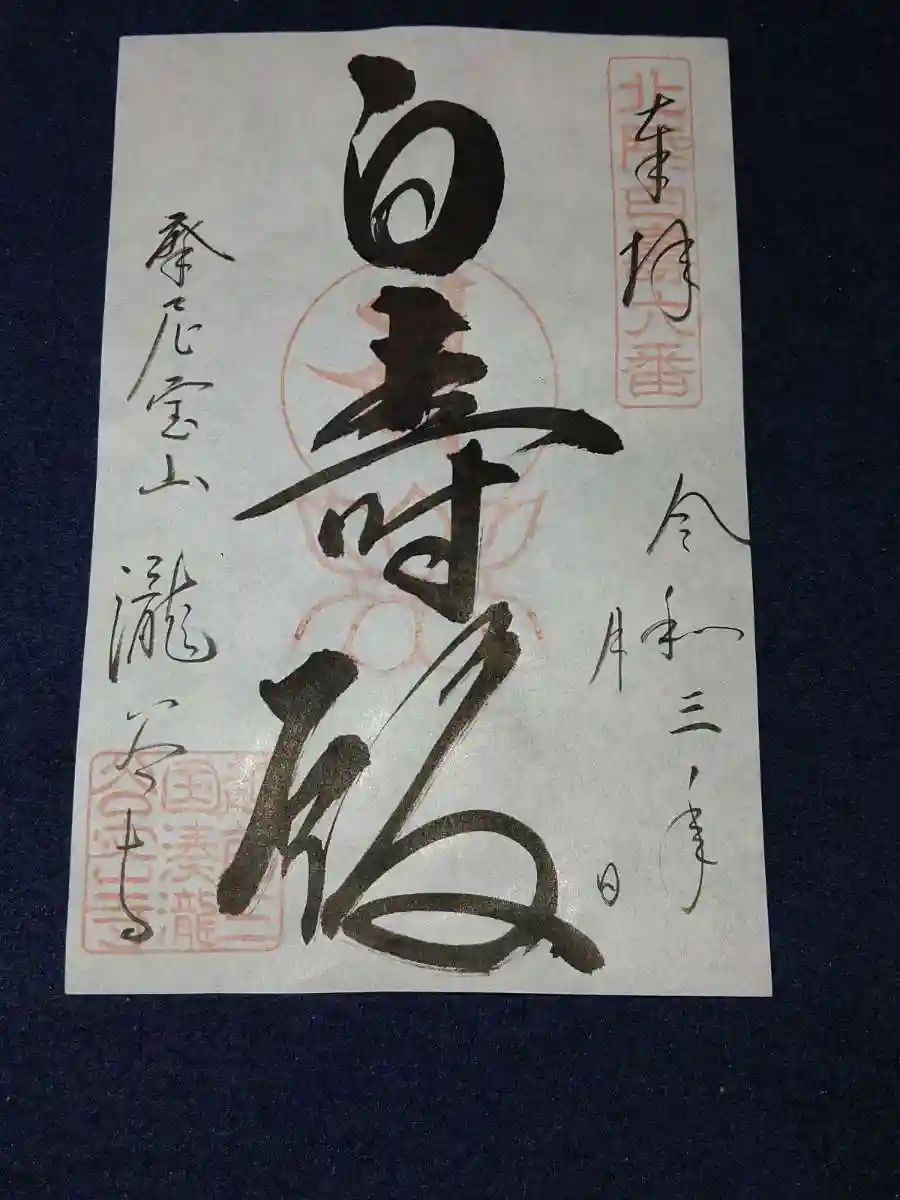 奉拝
北陸白寿六番
令和三年
月 日
白寿殿
摩尼宝山
瀧谷寺
三国湊瀧
谷寺